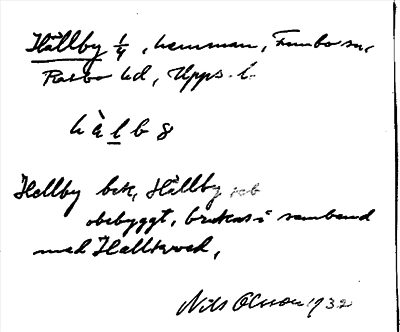 Hällby 1/4, hemman, Funbo sn,
Rasbo hd, Upps. l.
hàlbg
Hellby bek, Hällby jeb
obebyggt, brukas i samband
med Hallkved,
Nils Olsson 1932